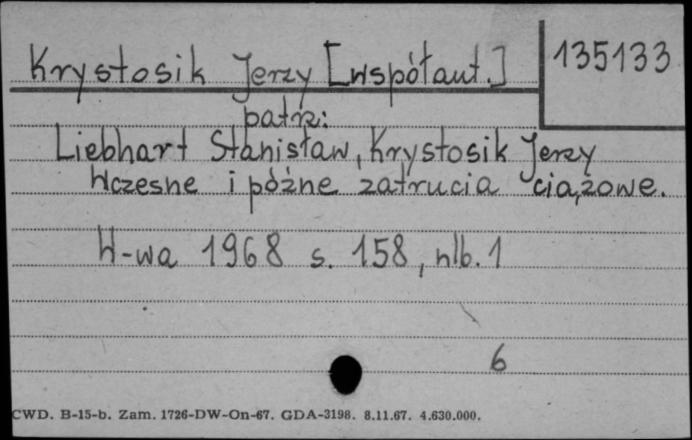 Krystosik Jerzy [współaut.]
135133
patrz:
Liebhart Stanisław, Krystosik Jerzy
Wczesne i późne zatrucia ciążowe.
W-wa 1968 s. 158, nlb. 1
6
CWD. B-15-b. Zam. 1726-DW-On-67. GDA-3198. 8.11.67. 4.630.000.